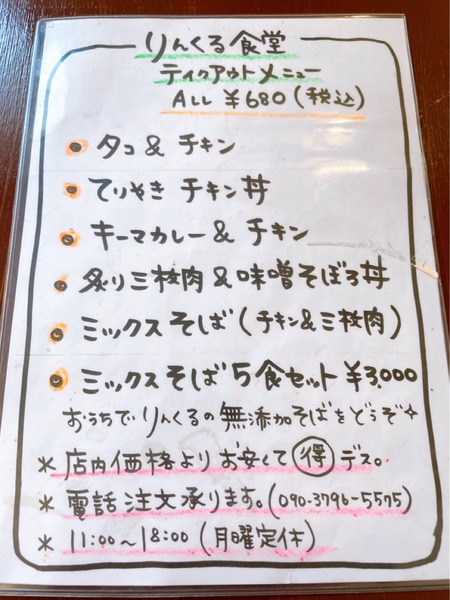 りんくる食堂
テイクアウトメニュー
ALL ¥680(税込)
タコ&チキン
てりやき チキン丼
キーマカレー&チキン
炙り三枚肉&味噌そぼろ丼
ミックスそば(チキン&三枚肉)
ミックスそば5食セット ¥3,000
おうちでりんくるの無添加そばをどうぞ✧
* 店内価格よりお安くて得デス。
* 電話注文承ります。(090-3796-5575)
* 11:00~18:00(月曜定休)